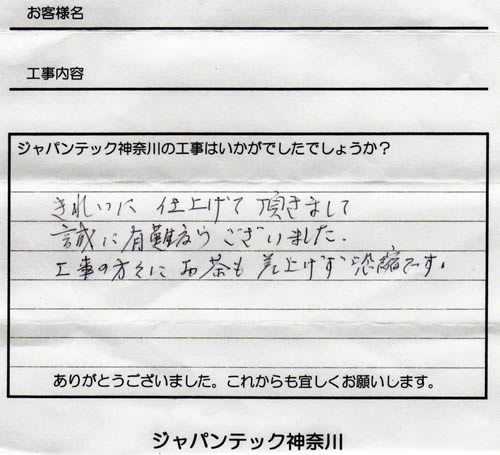 お客様名
工事内容
ジャパンテック神奈川の工事はいかがでしたでしょうか?
きれいに 仕上げて 頂きまして
誠に有難うございました.
工事の方々に お茶も 差上げず 恐縮です.
ありがとうございました。これからも宜しくお願いします。
ジャパンテック神奈川